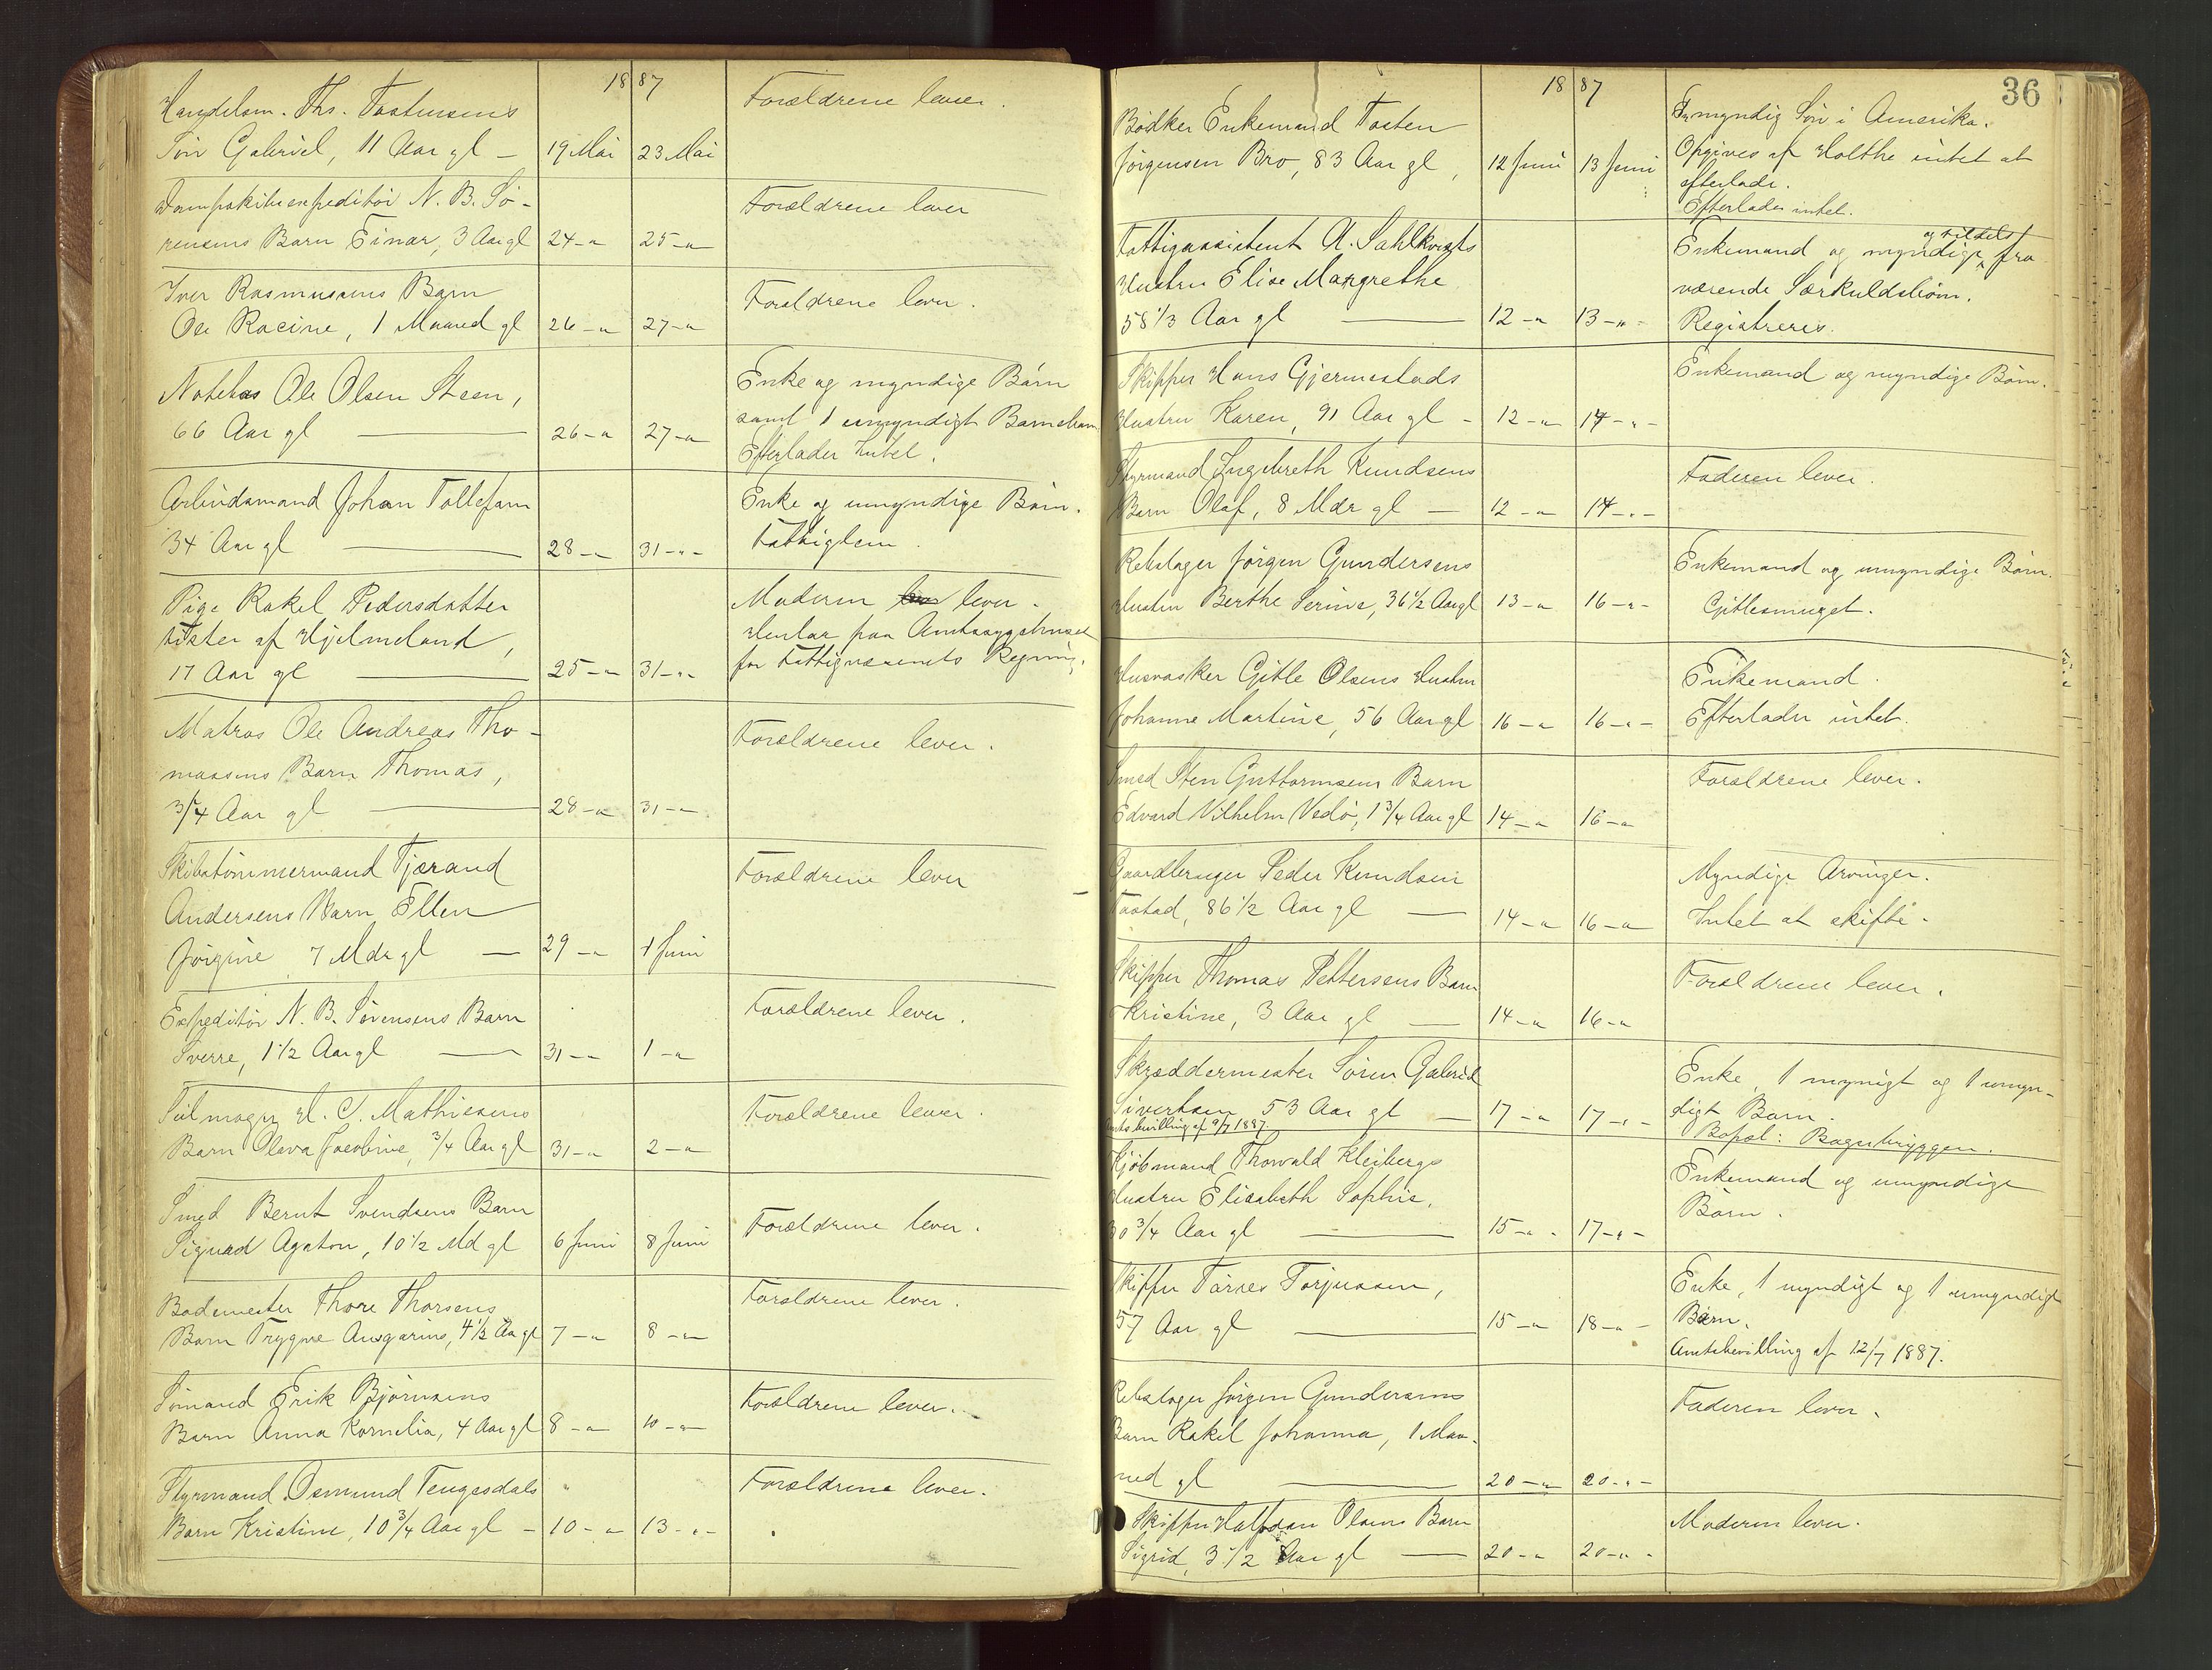 1887
Handelsm. Ths. Tostensens
Søn Gabriel, 11 Aar gl — 19 Mai 23 Mai
Forældrene lever.
Dampskibsexpeditør N. B. Sø-
rensens Barn Einar, 3 Aar gl 24 -"- 25 -"-
Forældrene lever
Iver Rasmussens Barn
Ole Racine, 1 Maaned gl 26 -"- 27 -"-
Forældrene lever.
Ole Olsen Steen,
66 Aar gl — 26 -"- 27 -"-
Enke og myndige Børn
samt 1 umyndigt Barnebarn.
Efterlader Intet.
Arbeidsmand Johan Tollefsen
34 Aar gl — 28 -"- 31 -"-
Enke og umyndige Børn.
Fattiglem
Pige Rakel Pedersdatter
af Hjelmeland,
17 Aar gl — 25 -"- 31 -"-
Moderen lever.
paa Amtssygehuset
for Fattigvæsenets Regning.
Matros Ole Andreas Tho-
massens Barn Thomas,
3/4 Aar gl — 28 -"- 31 -"-
Forældrene lever.
Skibstømmermand Tjærand
Andersens Barn Ellen
Jørgine 7 Mdr gl — 29 -"- 1 Juni
Forældrene lever
Expeditør N. B. Sørensens Barn
Sverre, 1 1/2 Aar gl — 31 -"- 1 -"-
Forældrene lever.
H. C. Mathiesens
Barn Olava Jacobine, 3/4 Aar gl 31 -"- 2 -"-
Forældrene lever.
Smed Bernt Svendsens Barn
Sigurd Agaton, 10 1/2 Md gl 6 Juni 8 Juni
Forældrene lever.
Bademester Thore Thorsens
Barn Trygve Ansgarius, 4 1/2 Aar gl 7 -"- 8 -"-
Forældrene lever.
Sømand Erik Bjørnsens
Barn Anna Kornelia, 4 Aar gl 8 -"- 10 -"-
Forældrene lever.
Styrmand Osmund Tengesdals
Barn Kristine, 10 3/4 Aar gl - 10 -"- 13 -"-
Forældrene lever.
36
1887
Bødker Enkemand Tosten
Jørgensen Bro, 83 Aar gl, 12 Juni 13 Juni
myndig Søn i Amerika.
Opgives af Holthe intet at
efterlade.
Efterlader intet.
Fattigassistent A. Sahlkvists
Hustru Elise Margrethe
58 1/3 Aar gl — 12 -"- 13 -"-
og tildels
Enkemand og myndige, fra-
værende Særkuldsbørn.
Registreres.
Skipper Hans Gjermestads
Hustru Karen, 91 Aar gl - 12 -"- 14 -"-
Enkemand og myndige Børn.
Styrmand Ingebreth Knudsens
Barn Olaf, 8 Mdr gl — 12 -"- 14 -"-
Faderen lever.
Rebslager Jørgen Gundersens
Hustru Berthe Serine, 36 1/2 Aar gl 13 -"- 16 -"-
Enkemand og umyndige Børn.
Gitlesmuget.
Gitle Olsens Hustru
Johanne Martine, 56 Aar gl 16 -"- 16 -"-
Enkemand.
Efterlader intet.
Smed Sten Guttormsens Barn
Edvard Vilhelm Vedø, 1 3/4 Aar gl 14 -"- 16 -"-
Forældrene lever.
Gaardbruger Peder Knudsen
Tastad, 86 1/2 Aar gl — 14 -"- 16 -"-
Myndige Arvinger.
Intet at skifte.
Skipper Thomas Pettersens Barn
Kristine, 3 Aar gl — 14 -"- 16 -"-
Forældrene lever.
Skræddermester Søren Gabriel
Sivertsen 53 Aar gl — 17 -"- 17 -"-
Amtsbevilling af 9/7 1887.
Enke, 1 mynigt og 1 umyn-
digt Barn.
Bopæl: Bagerbryggen.
Kjøbmand Thorvald Kleibergs
Hustru Elisabeth Sophie,
30 3/4 Aar gl — 15 -"- 17 -"-
Enkemand og umyndige
Børn.
Skipper Tørres Torjussen,
57 Aar gl — 15 -"- 18 -"-
Enke, 1 myndigt og 1 umyndigt
Barn.
Amtsbevilling af 12/7 1887.
Rebslager Jørgen Gundersens
Barn Rakel Johanna, 1 Maa-
ned gl — 20 -"- 20 -"-
Faderen lever.
Skipper Halfdan Olsens Barn
Sigrid, 3 1/2 Aar gl — 20 -"- 20 -"-
Moderen lever.